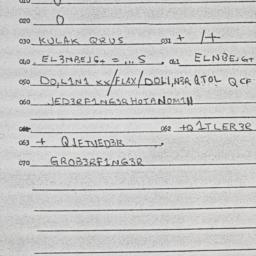 010 0
020 0
030 KULAK QRUS 031 + /+
040 EL3NBEJG+ = ,.. S 041 ELNBEJG+
050 DO,L1N1 XX/FLAX/DOLI,N3R QTOL QCF
060 JED3RF1NG3RHOTANOM1N
062 +Q1TLER3R
063 + Q1ETVED3R .
070 GROB3RF1NG3R